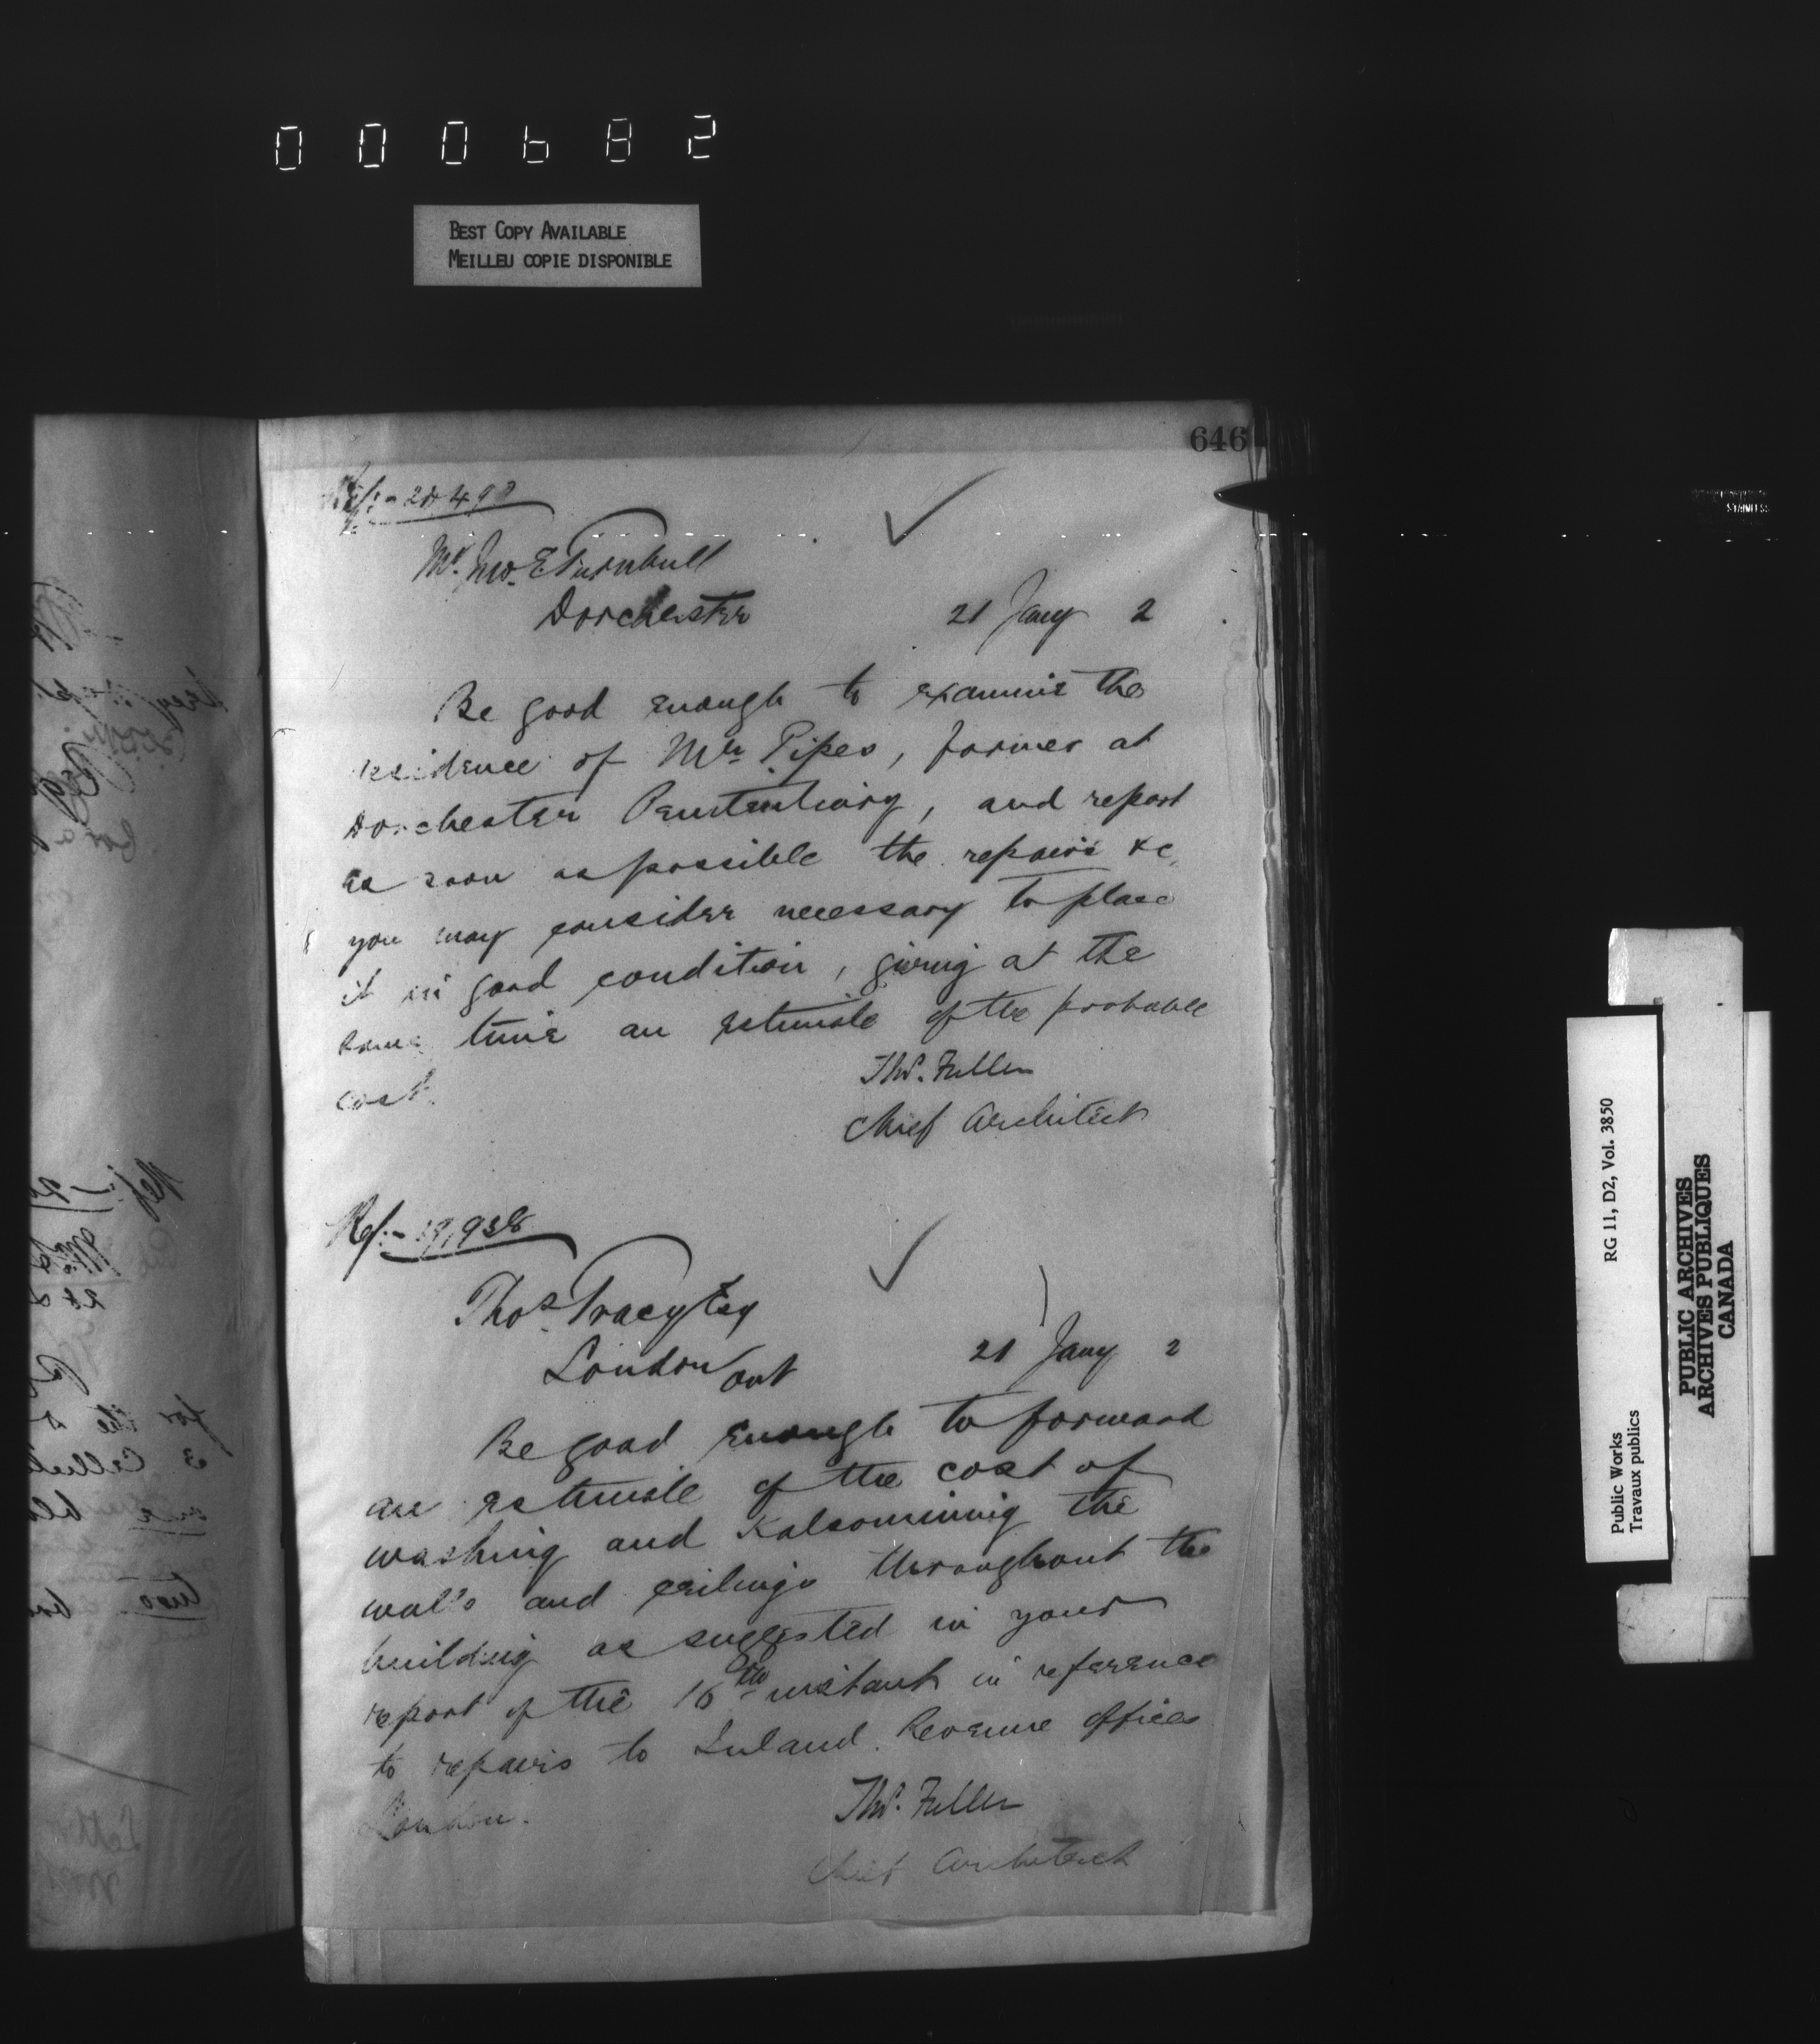 000682
BEST COPY AVAILABLE
MEILLEU COPIE DISPONIBLE
646
Mr. Jno. E Turnbull
Dorchester
21 Jany 2
Be good enough to examine the
residence of Mr Pipes, farmer at
Dorchester Penitentiary, and report
as soon as possible the repairs &c.
you may consider necessary to place
it in good condition, giving at the
same time an estimate of the probable
cost.
Thos. Fuller
Chief Architect
Ref:- 19,938
Thos. Tracy Esq
London Ont
21 Jany 2
Be good enough to forward
an estimate of the cost of
washing and Kalsomining the
walls and ceilings throughout the
building as suggested in your
report of the 16th instant in reference
to repairs to Inland Revenue Offices
London.
Thos. Fuller
Chief Architect
Public Works
Travaux publics
RG 11, D2, Vol. 3850
PUBLIC ARCHIVES
ARCHIVES PUBLIQUES
CANADA